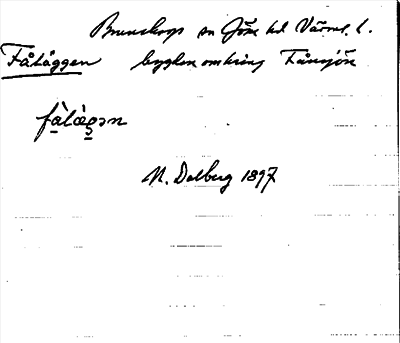 Brunskogs sn Jösse hd Värml. l.
Fåläggen bygden omkring Fånsjön
fàlàgən
N. Dalberg 1897